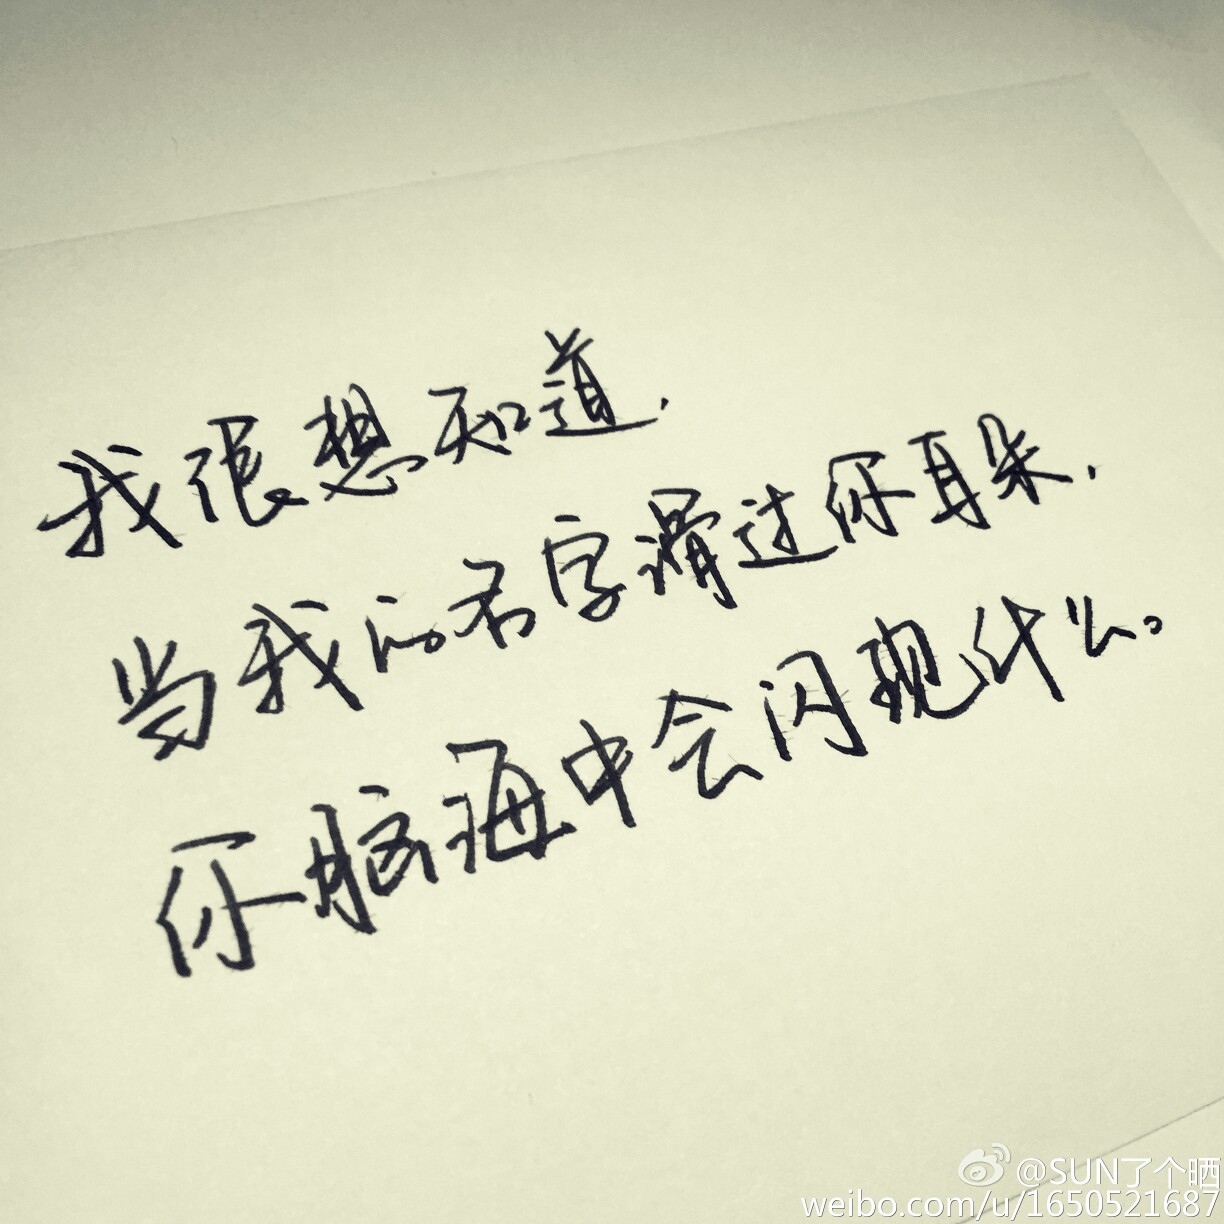 我很想知道.
当我的名字滑过你耳朵.
你脑海中会闪现什么。
@SUN了个晒
weibo.com/u/1650521687